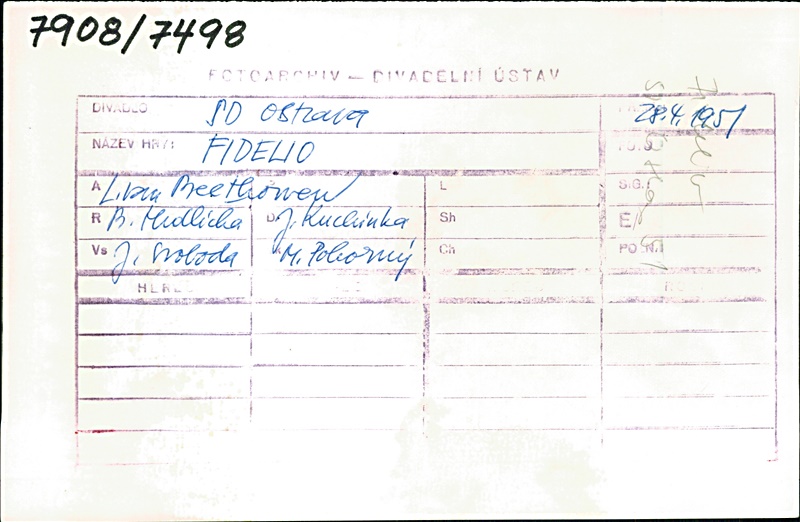 7908/7498
FOTOARCHIV — DIVADELNÍ ÚSTAV
DIVADLO SD Ostrava 28.4.1951
NÁZEV HRY: FIDELIO
A L. van Beethowen L SIG.:
R B. Hrdlička D J. Kuchinka Sh E
Vs J. Svoboda M. Pokorný Ch POZN.
HEREC